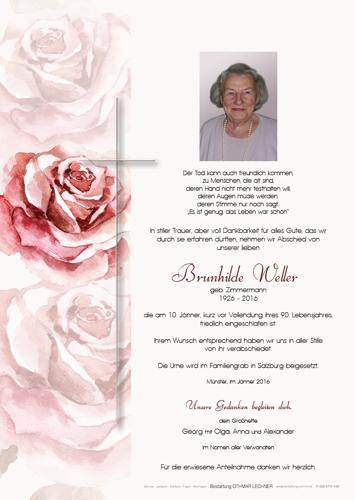 Der Tod kann auch freundlich kommen,
zu Menschen, die alt sind,
deren Hand nicht mehr festhalten will,
deren Augen müde werden,
deren Stimme nur noch sagt,
„Es ist genug, das Leben war schön"
In stiller Trauer, aber voll Dankbarkeit für alles Gute, das wir
durch sie erfahren durften, nehmen wir Abschied von
unserer lieben
Brunhilde Weller
geb. Zimmermann
1926 - 2016
die am 10. Jänner, kurz vor Vollendung ihres 90. Lebensjahres,
friedlich eingeschlafen ist.
Ihrem Wunsch entsprechend haben wir uns in aller Stille
von ihr verabschiedet.
Die Urne wird im Familiengrab in Salzburg beigesetzt.
Münster, im Jänner 2016
Unsere Gedanken begleiten dich.
dein Großneffe
Georg mit Olga, Anna und Alexander
im Namen aller Verwandten
Für die erwiesene Anteilnahme danken wir herzlich.
Bestattung OTHMAR LECHNER